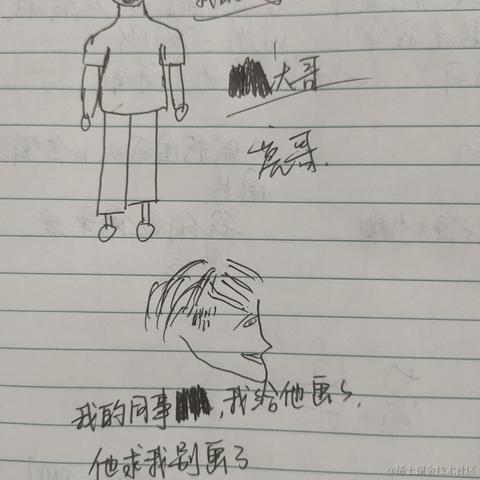 大哥
哥
我的同事,我给他画了,
他求我别画了
@稀土掘金技术社区